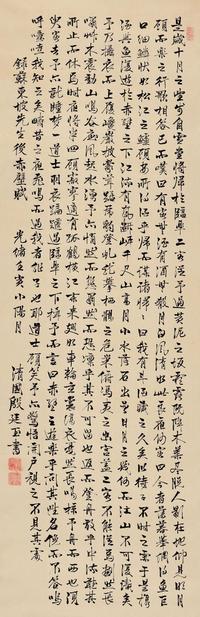 是歲十月之望步自雪堂將歸於臨皋二客從予過黃泥之坂霜露既降木葉盡脫人影在地仰見明月
顧而樂之行歌相答已而嘆曰有客無酒有酒無肴月白風清如此良夜何客曰今者薄暮舉網得魚巨
口細鱗狀如松江之鱸顧安所得酒乎歸而謀諸婦婦曰我有斗酒藏之久矣以待子不時之需於是攜
酒與魚復遊於赤壁之下江流有聲斷岸千尺山高月小水落石出曾日月之幾何而江山不可復識矣
予乃攝衣而上履巉巖披蒙茸踞虎豹登虬龍攀栖鶻之危巢俯馮夷之幽宮蓋二客不能從焉劃然長
嘯草木震動山鳴谷應風起水涌予亦悄然而悲肅然而恐凜乎其不可留也反而登舟放乎中流聽其
所止而休焉時夜將半四顧寂寥適有孤鶴橫江東來翅如車輪玄裳縞衣戛然長鳴掠予舟而西也須
臾客去予亦就睡夢一道士羽衣蹁躚過臨皋之下揖予而言曰赤壁之遊樂乎問其姓名俛而不答嗚
呼噫嘻我知之矣疇昔之夜飛鳴而過我者非子也耶道士顧笑予亦驚悟開戶視之不見其處
錄蘇東坡先生後赤壁賦 光緒壬寅小陽月
清國殷廷玉書